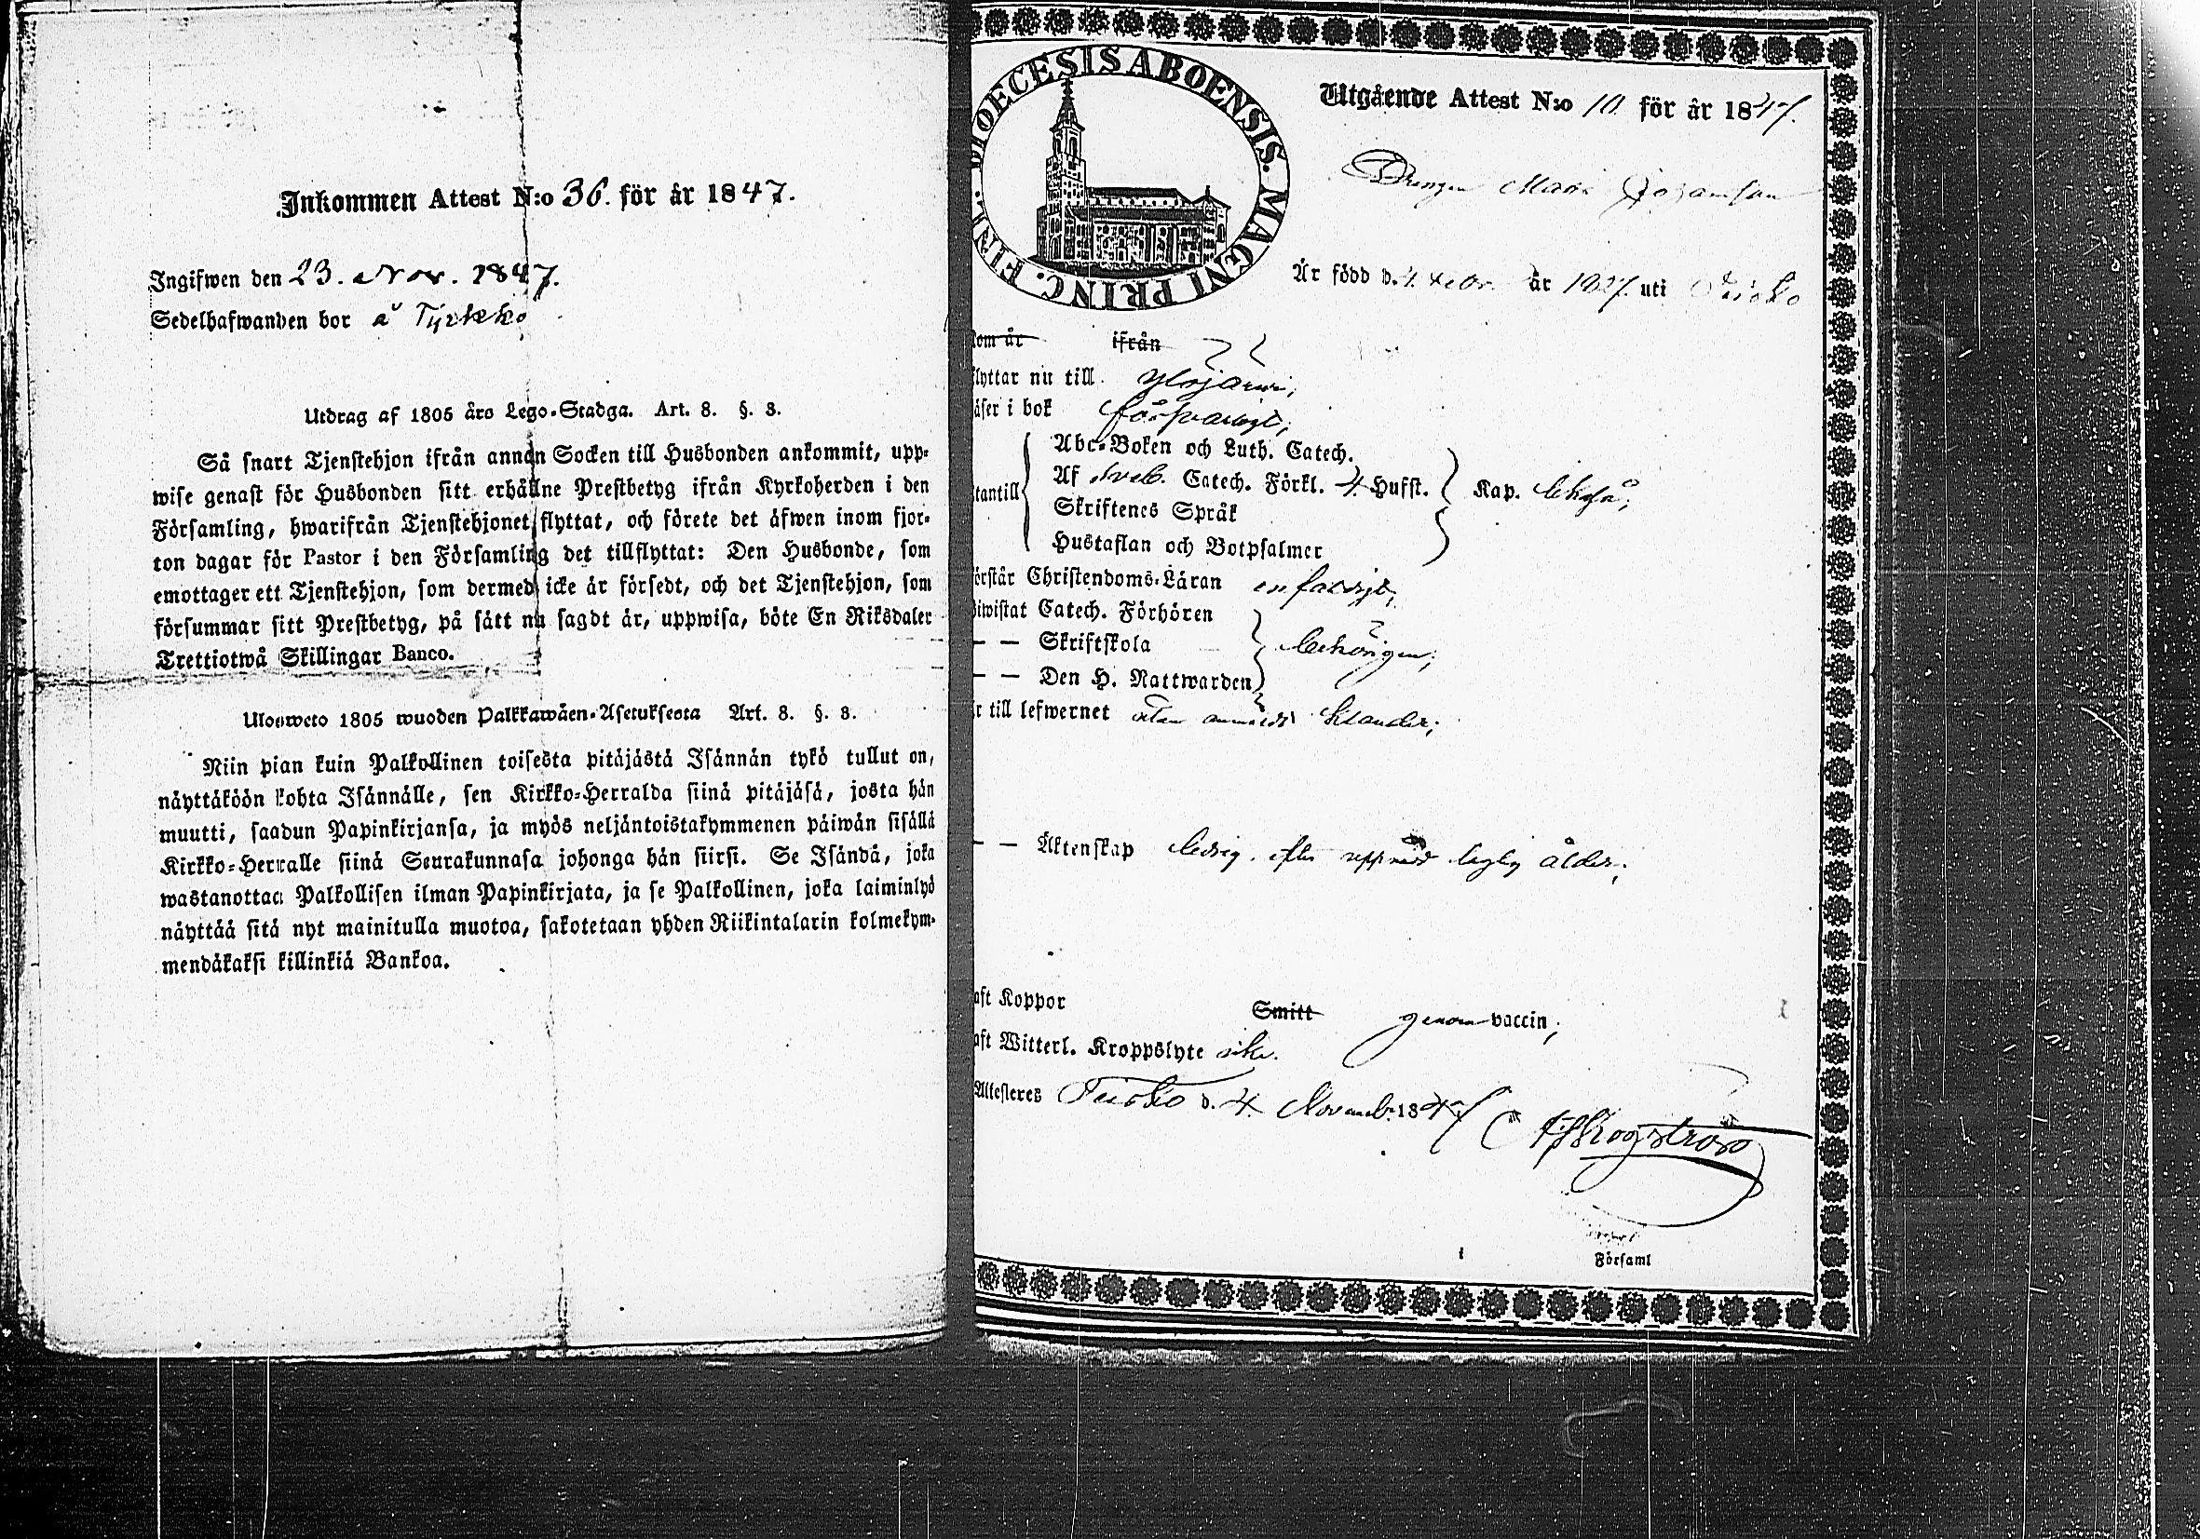 Inkommen Attest N:o 36. för år 1847.
Ingifwen den 23. Nov. 1847.
Sedelhafwanden bor å Tyrkkö
Utdrag af 1805 års Lego-Stadga. Art. 8. §. 8.
Så snart Tjenstehjon ifrån annan Socken till Husbonden ankommit, upp-
wise genast för Husbonden sitt erhållne Prestbetyg ifrån Kyrkoherden i den
Församling, hwarifrån Tjenstehjonet flyttat, och förete det äfwen inom fjor-
ton dagar för Pastor i den Församling det tillflyttat: Den Husbonde, som
emottager ett Tjenstehjon, som dermed icke är försedt, och det Tjenstehjon, som
försummar sitt Prestbetyg, på sätt nu sagdt är, uppwisa, böte En Riksdaler
Trettiotwå Skillingar Banco.
Ulosweto 1805 wuoden Palkkawäen-Asetuksesta Art. 8. §. 8.
Niin pian kuin Palkollinen toisesta pitäjästä Isännän tykö tullut on,
näyttäköön kohta Isännälle, sen Kirkko-Herralda siinä pitäjäsä, josta hän
muutti, saadun Papinkirjansa, ja myös neljäntoistakymmenen päiwän sisällä
Kirkko-Herralle siinä Seurakunnasa johonga hän siirsi. Se Isändä, joka
wastanottaa Palkollisen ilman Papinkirjata, ja se Palkollinen, joka laiminlyö
näyttää sitä nyt mainitulla muotoa, sakotetaan yhden Riikintalarin kolmekym-
mendäkaksi killinkiä Bankoa.
DIOECESIS ABOENSIS. MAGNI PRINC. FINL.
Utgående Attest N:o 10 för år 1847.
Drengen Matts Johansson
Är född d. 4. Febr. år 1827. uti Teisko
kom år ifrån
flyttar nu till Ylöjärwi;
läser i bok försvarligt;
utantill
Abc-Boken och Luth. Catech.
Af Sveb. Catech. Förkl. 4. Hufst. Kap. likaså;
Skriftenes Språk
Hustaflan och Botpsalmer
förstår Christendoms-Läran enfaldigt;
biwistat Catech. Förhören
— — Skriftskola behörigen;
— — Den H. Nattwarden
är till lefwernet utan anmärkt klander;
— — Äktenskap ledig, efter uppnådd laglig ålder;
haft Koppor Smitt genom vaccin;
haft Witterl. Kroppslyte icke.
Attesteres Teisko d. 4 November 1847
Församl